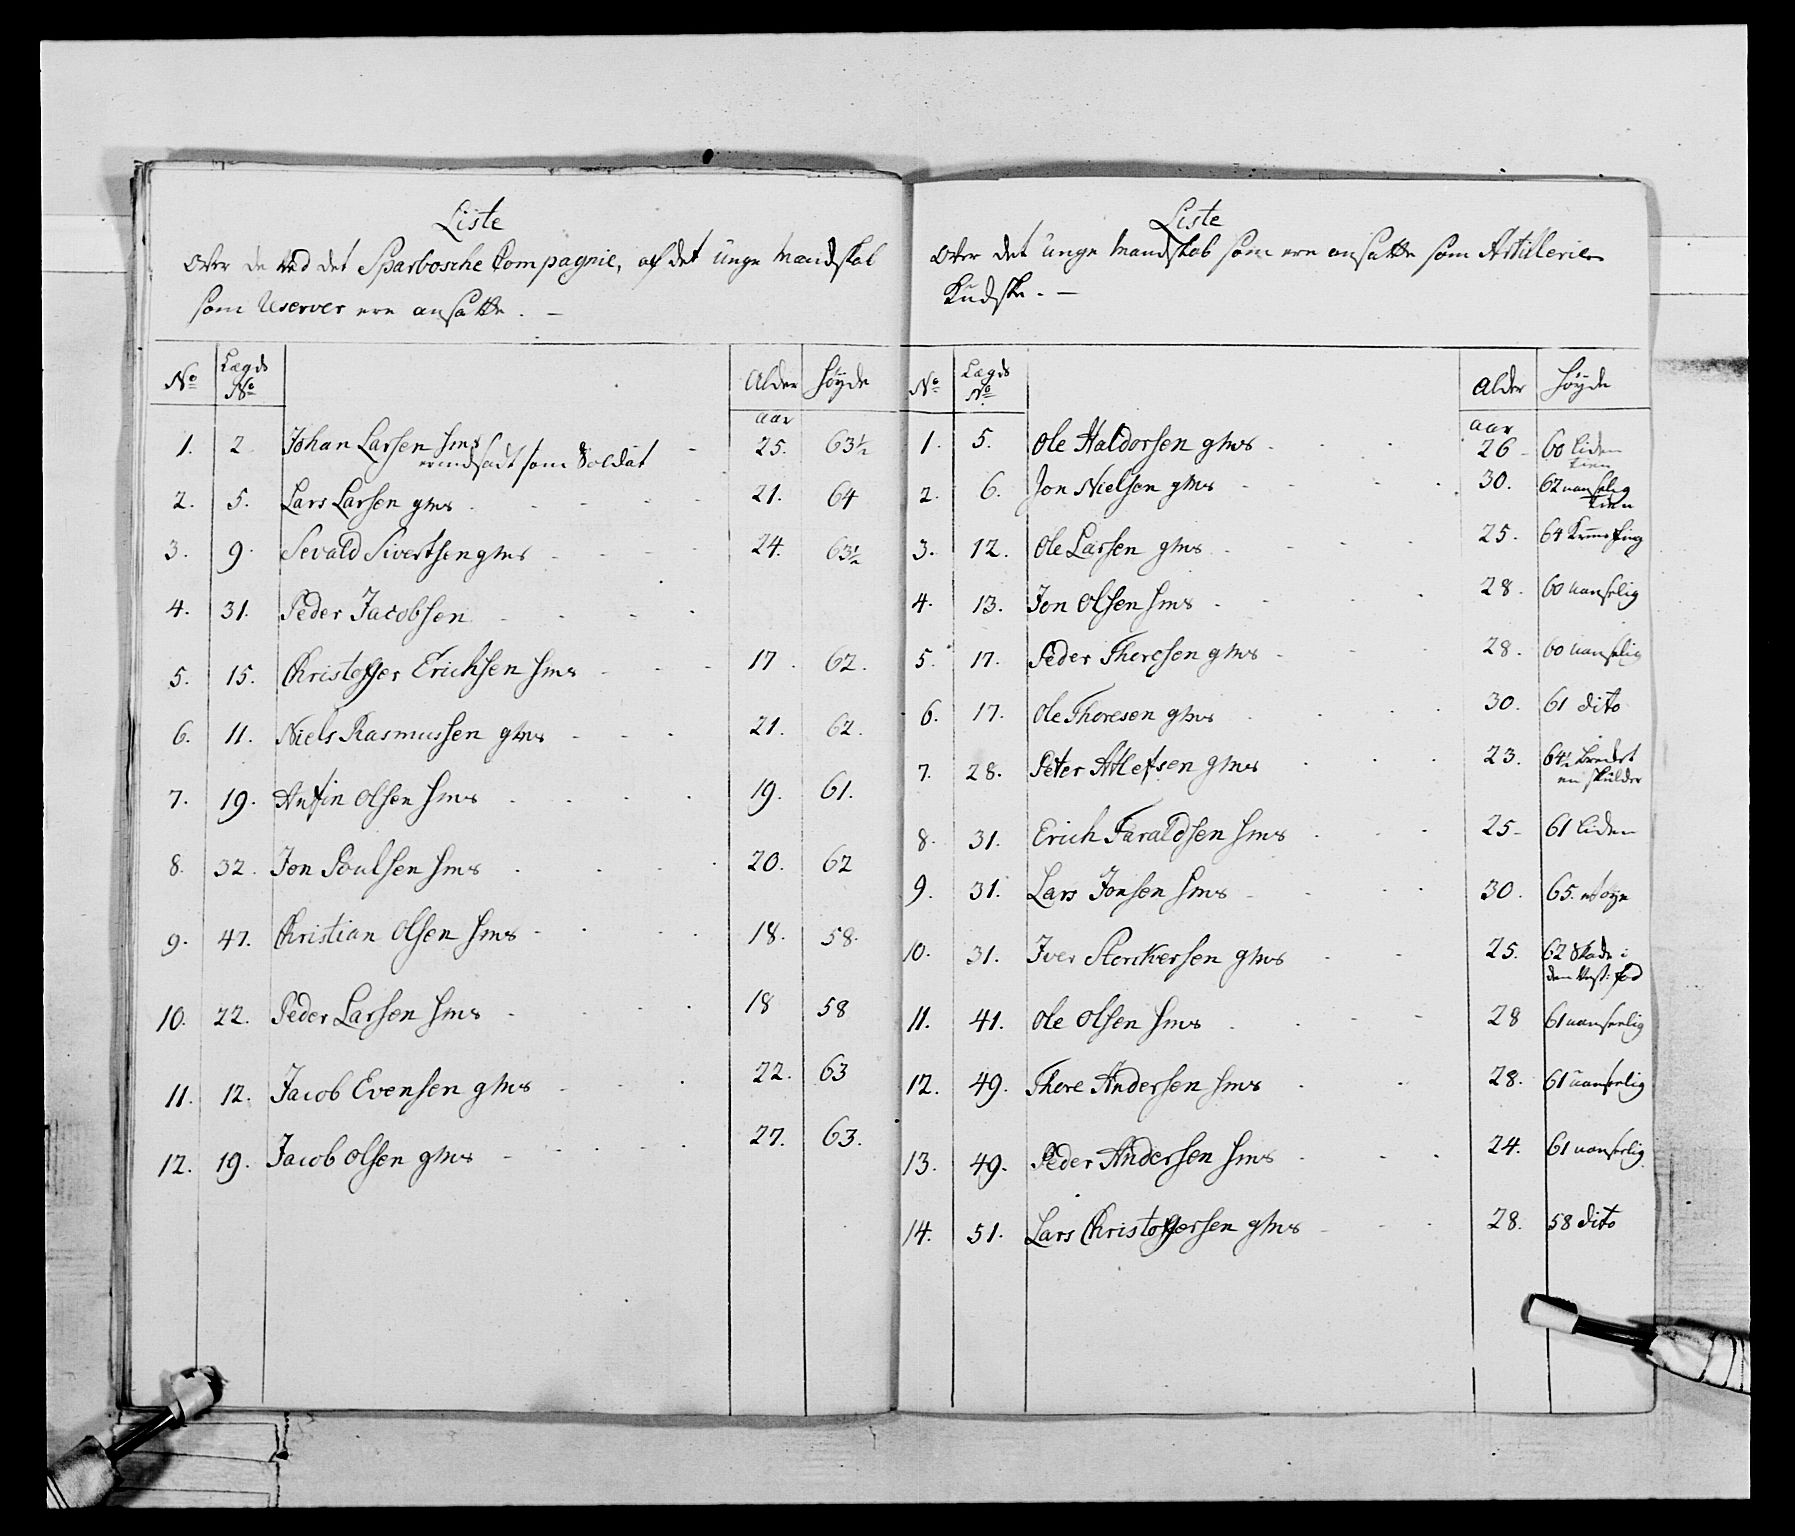 Liste
over de ved det Sparbosche Compagnie, af det unge Mandskab
som Reserver ere ansatte. —
No Lægds No Alder Höyde
aar
1. 2 Johan Larsen hms 25. 63½
er indsadt som Soldat
2. 5. Lars Larsen gms 21. 64
3. 9. Sevald Sivertsen gms 24. 63½
4. 31. Peder Jacobsen
5. 15. Christoffer Erichsen hms 17. 62.
6. 11. Niels Rasmussen gms 21. 62.
7. 19. Anfin Olsen hms 19. 61.
8. 32. Jon Poulsen hms 20. 62
9. 47. Christian Olsen hms 18. 58.
10. 22. Peder Larsen hms 18 58
11. 12. Jacob Evensen gms 22. 63
12. 19. Jacob Olsen gms 27. 63.
Liste
over det unge Mandskab som ere ansatte som Artillerie
Kudske. —
No Lægds No Alder Höyde
aar
1. 5. Ole Haldorsen gms 26 60 liden
2. 6. Jon Nielsen gms 30. 62 uanselig
3. 12. Ole Larsen gms 25. 64
4. 13. Jon Olsen hms 28. 60 uanselig
5. 17. Peder Thoresen gms 28. 60 uanselig
6. 17. Ole Thoresen gms 30. 61 dito
7. 28. Peter Atlefsen gms 23. 64½
skulder
8. 31. Erich Taraldsen hms 25 61 liden
9. 31. Lars Jonsen hms 30. 65. et öye
10. 31. Iver Storkersen gms 25. 62 Skade i
den fod
11. 41. Ole Olsen hms 28 61 uanseelig
12. 49. Thore Andersen hms 28. 61 uanseelig
13. 49. Peder Andersen hms 24. 61 uanseelig
14. 51. Lars Christoffersen gms 28. 58 dito